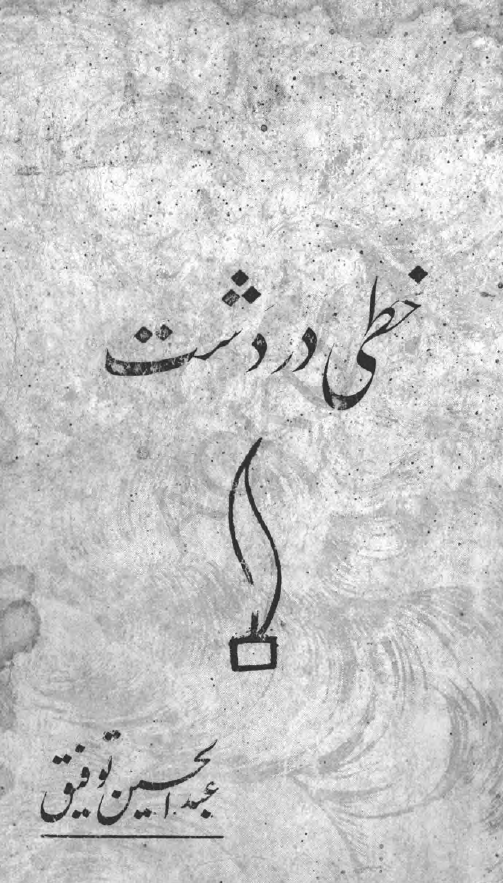 خطی در دشت
عبدالحسین توفیق